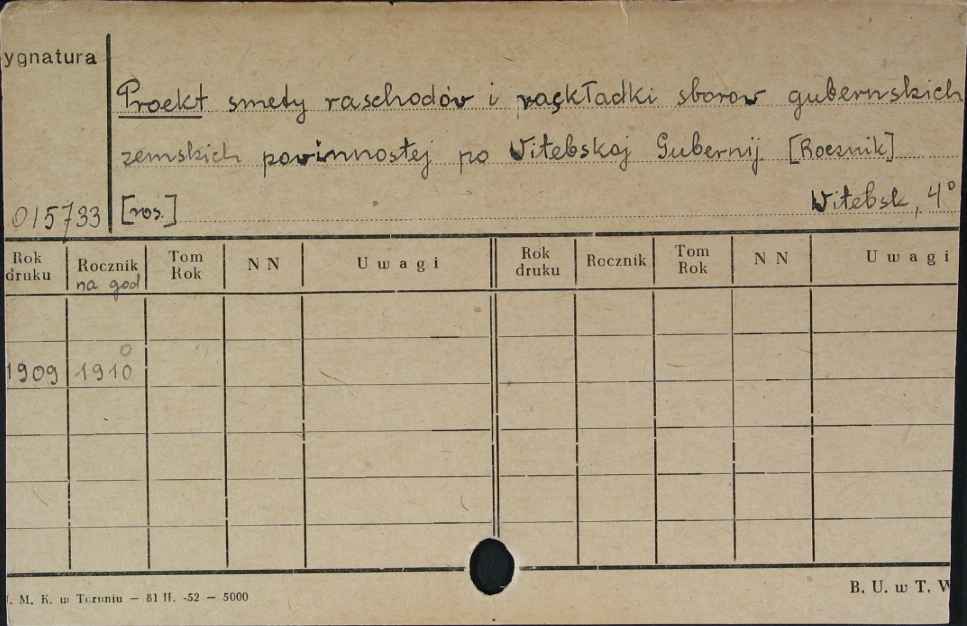 ygnatura
Proekt smety raschodów i raskładki sborow gubernskich
zemskich powinnostej po Witebskoj Gubernij [Rocznik]
015733 [ros.] Witebsk, 4°
Rok druku Rocznik na god Tom Rok N N U w a g i Rok druku Rocznik Tom Rok N N U w a g i
0
1909 1910
. M. K. w Toruniu — 81 II. -52 — 5000
B. U. w T. W